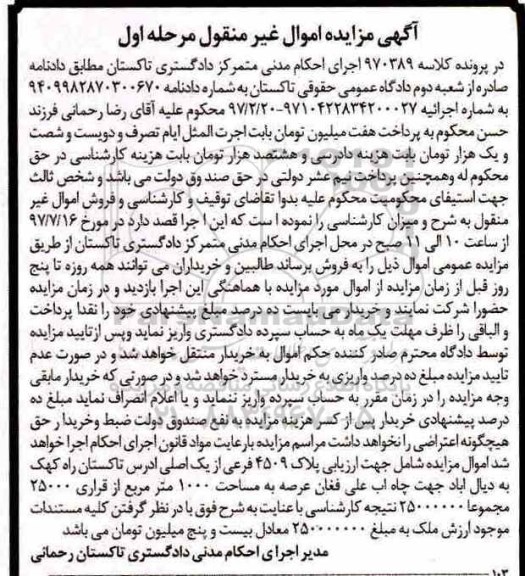 آگهی مزایده اموال غیر منقول مرحله اول
در پرونده کلاسه ۹۷۰۳۸۹ اجرای احکام مدنی متمرکز دادگستری تاکستان مطابق دادنامه
صادره از شعبه دوم دادگاه عمومی حقوقی تاکستان به شماره دادنامه ۹۴۰۹۹۸۲۸۷۰۳۰۰۶۷۰
به شماره اجرائیه ۹۷۱۰۴۲۲۸۳۴۲۰۰۰۲۷-۹۷/۲/۲۰ محکوم علیه آقای رضا رحمانی فرزند
حسن محکوم به پرداخت هفت میلیون تومان بابت اجرت المثل ایام تصرف و دویست و شصت
و یک هزار تومان بابت هزینه دادرسی و هشتصد هزار تومان بابت هزینه کارشناسی در حق
محکوم له وهمچنین پرداخت نیم عشر دولتی در حق صندوق دولت می باشد و شخص ثالث
جهت استیفای محکومیت محکوم علیه بدوا تقاضای توقیف و کارشناسی و فروش اموال غیر
منقول به شرح و میزان کارشناسی را نموده است که این اجرا قصد دارد در مورخ ۹۷/۷/۱۶
از ساعت ۱۰ الی ۱۱ صبح در محل اجرای احکام مدنی متمرکز دادگستری تاکستان از طریق
مزایده عمومی اموال ذیل را به فروش برساند طالبین و خریداران می توانند همه روزه تا پنج
روز قبل از زمان مزایده از اموال مورد مزایده با هماهنگی این اجرا بازدید و در زمان مزایده
حضورا شرکت نمایند و خریدار می بایست ده درصد مبلغ پیشنهادی خود را نقدا پرداخت
و الباقی را ظرف مهلت یک ماه به حساب سپرده دادگستری واریز نماید وپس ازتایید مزایده
توسط دادگاه محترم صادر کننده حکم اموال به خریدار منتقل خواهد شد و در صورت عدم
تایید مزایده مبلغ ده درصد واریزی به خریدار مسترد خواهد شد و در صورتی که خریدار مابقی
وجه مزایده را در زمان مقرر به حساب سپرده واریز ننماید و یا اعلام انصراف نماید مبلغ ده
درصد پیشنهادی خریدار پس از کسر هزینه مزایده به نفع صندوق دولت ضبط وخریدار حق
هیچگونه اعتراضی را نخواهد داشت مراسم مزایده بارعایت مواد قانون اجرای احکام اجرا خواهد
شد اموال مزایده شامل جهت ارزیابی پلاک ۴۵۰۹ فرعی از یک اصلی ادرس تاکستان راه کهک
به دیال اباد جهت چاه اب علی فغان عرصه به مساحت ۱۰۰۰ متر مربع از قراری ۲۵۰۰۰
مجموعا ۲۵۰۰۰۰۰۰ نتیجه کارشناسی با عنایت به شرح فوق با در نظر گرفتن کلیه مستندات
موجود ارزش ملک به مبلغ ۲۵۰۰۰۰۰۰۰ معادل بیست و پنج میلیون تومان می باشد
مدیر اجرای احکام مدنی دادگستری تاکستان رحمانی
۱۰۳